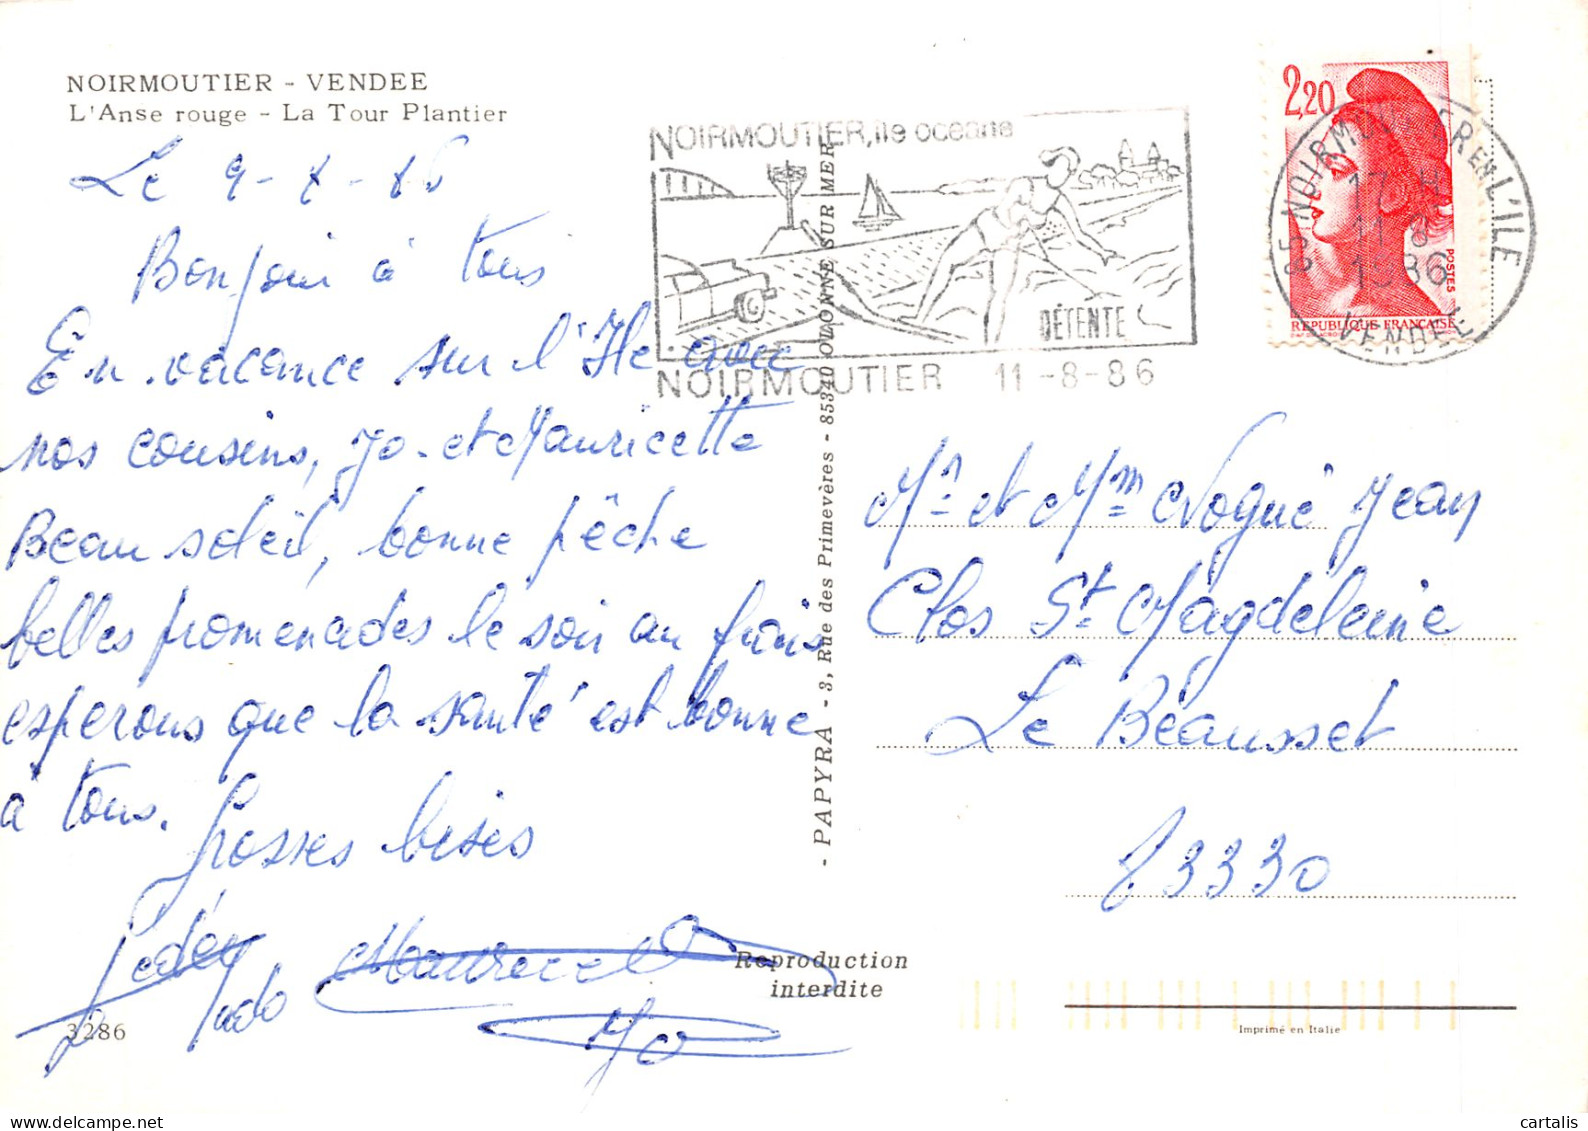 NOIRMOUTIER - VENDEE
L'Anse rouge - La Tour Plantier
Le 9-8-86
Bonjour à tous
En vacance sur l'Ile avec
nos cousins, Jo et Mauricette
Beau soleil, bonne pêche
belles promenades le soir au frais
esperons que la santé est bonne
à tous.
Grosses bises
Mauricet
Jo
3286
NOIRMOUTIER, île océane
DÉTENTE
NOIRMOUTIER 11-8-86
2,20
POSTES
REPUBLIQUE FRANÇAISE
85 NOIRMOUTIER EN L'ILE
17 H
11-8
1986
VENDEE
- PAPYRA - 3, Rue des Primevères - 85340 OLONNE SUR MER
Mr et Mme Nogué Jean
Clos St Magdeleine
Le Beausset
83330
Reproduction
interdite
Imprimé en Italie
delcampe.net
cartalis